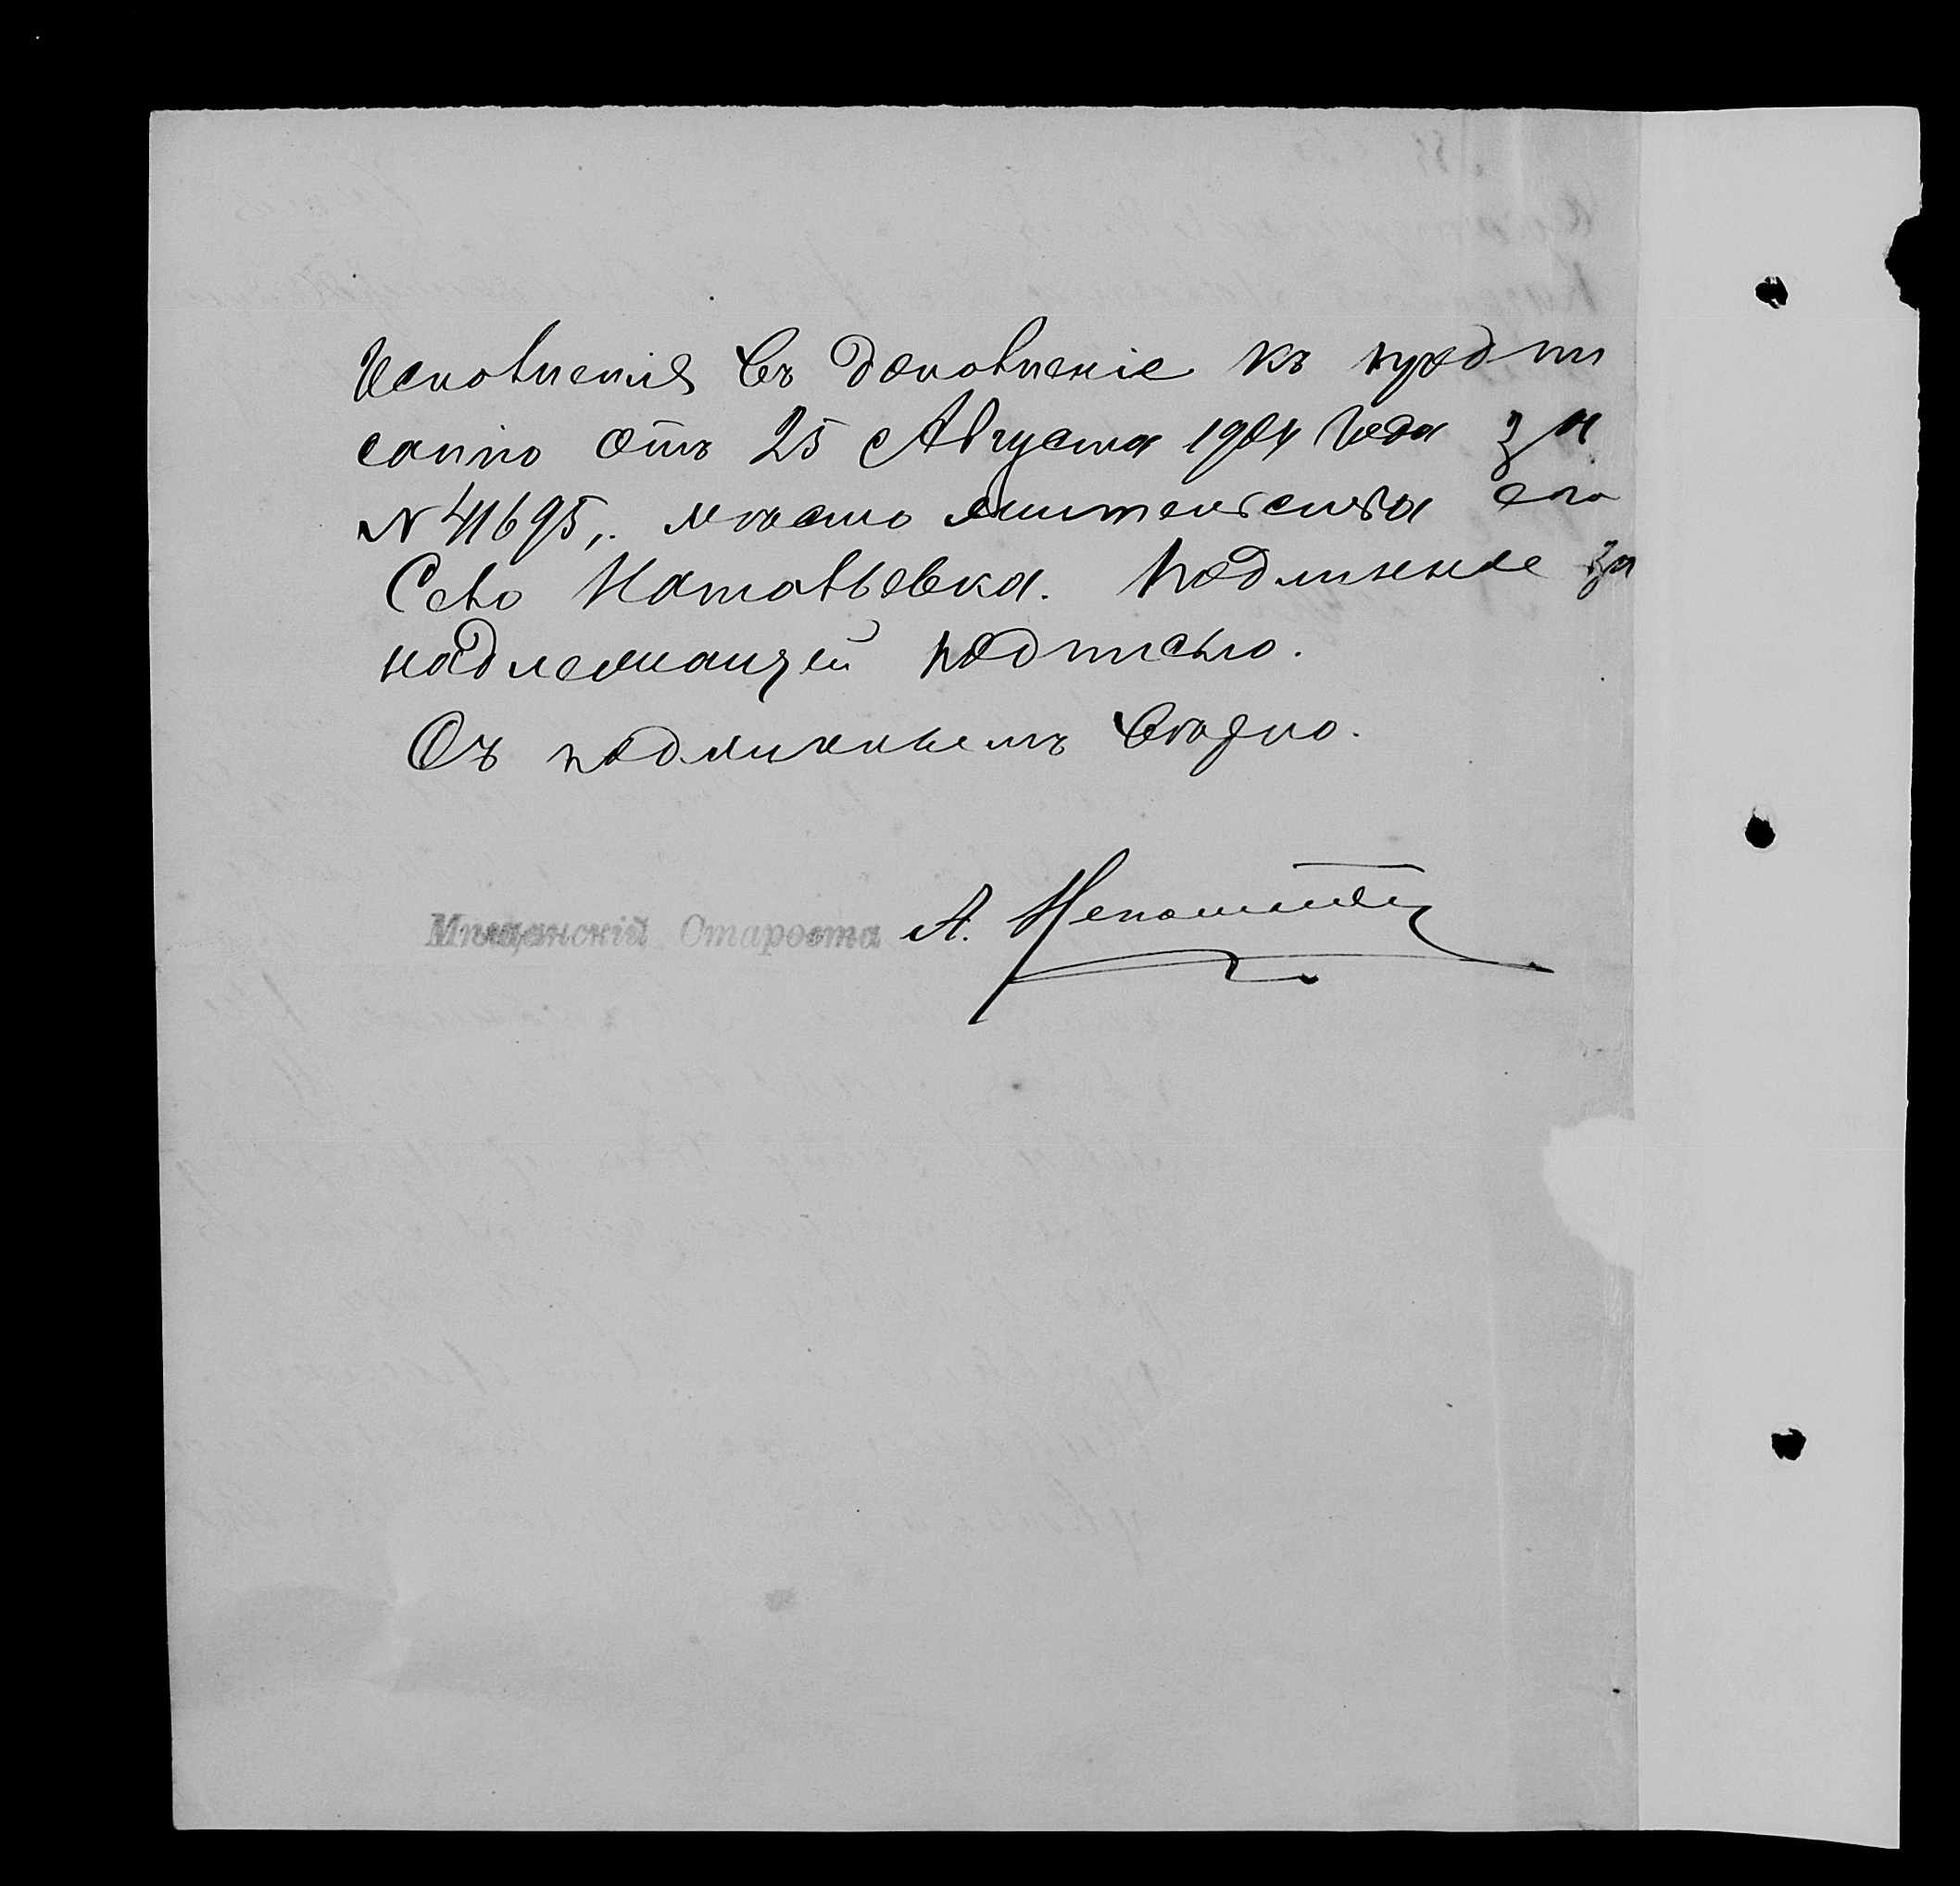 Исполненія въ дополненіе къ предпи
санію отъ 25 Августа 1904 года за
N 41695,. мѣсто жительства его
Село Натальевка. Подлинное за
надлежащей подписью.
Съ подлиннымъ вѣрно.
Мѣщанскій Староста А.